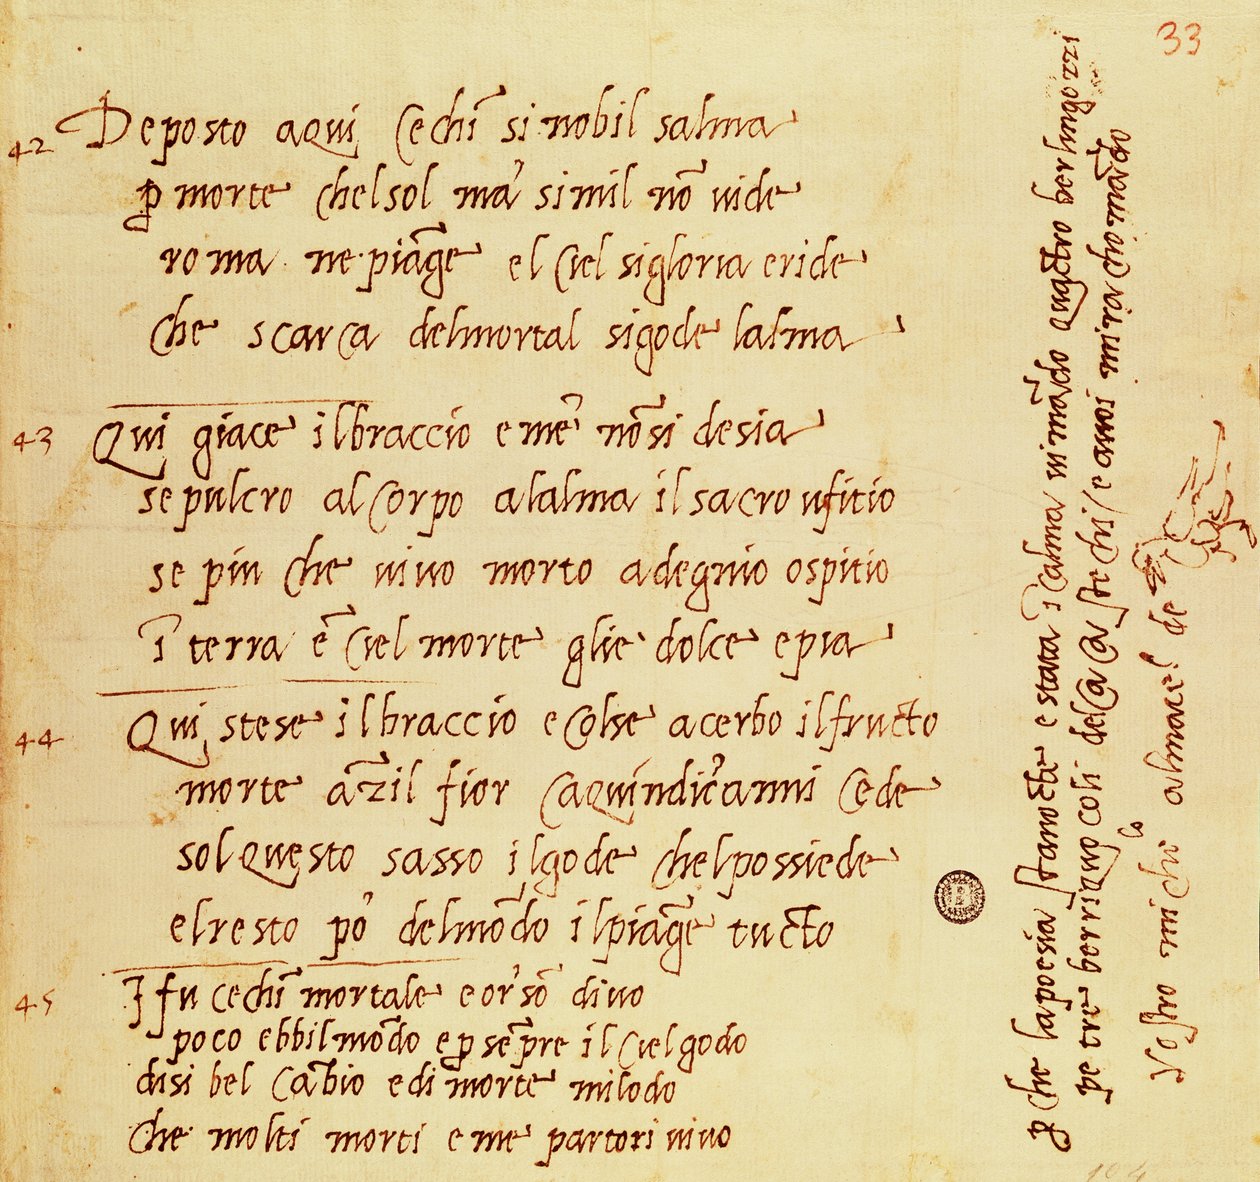 33
42 Deposto aqui Cechī si nobil salma
p̄ morte chel sol ma' simil nō vide
roma ne piāge el ciel si gloria e ride
che scarca del mortal si gode lalma
43 Qui giace il braccio e me' nō si desia
sepulcro al corpo alalma il sacro ufitio
se piu che vivo morto a degnio ospitio
ī terra ē ciel morte glie dolce e pia
44 Qui stese il braccio e colse acerbo il fructo
morte āzi il fior ca quindic'anni cede
sol questo sasso il gode chel possiede
el resto po' del mōdo il piāge tucto
45 I fu cechī mortale e or' sō divo
poco ebbi l mōdo e p̄ sēpre il ciel godo
di si bel cābio e di morte mi lodo
che molti morti e me partori vivo
p̄che la poesia stanocte e stata ī calma vi mādo quactro berlingozzi
pe tre berriquocoli del cacastechi e a voi mi rachomādo
Vostro michelāgniolo al macel de
104